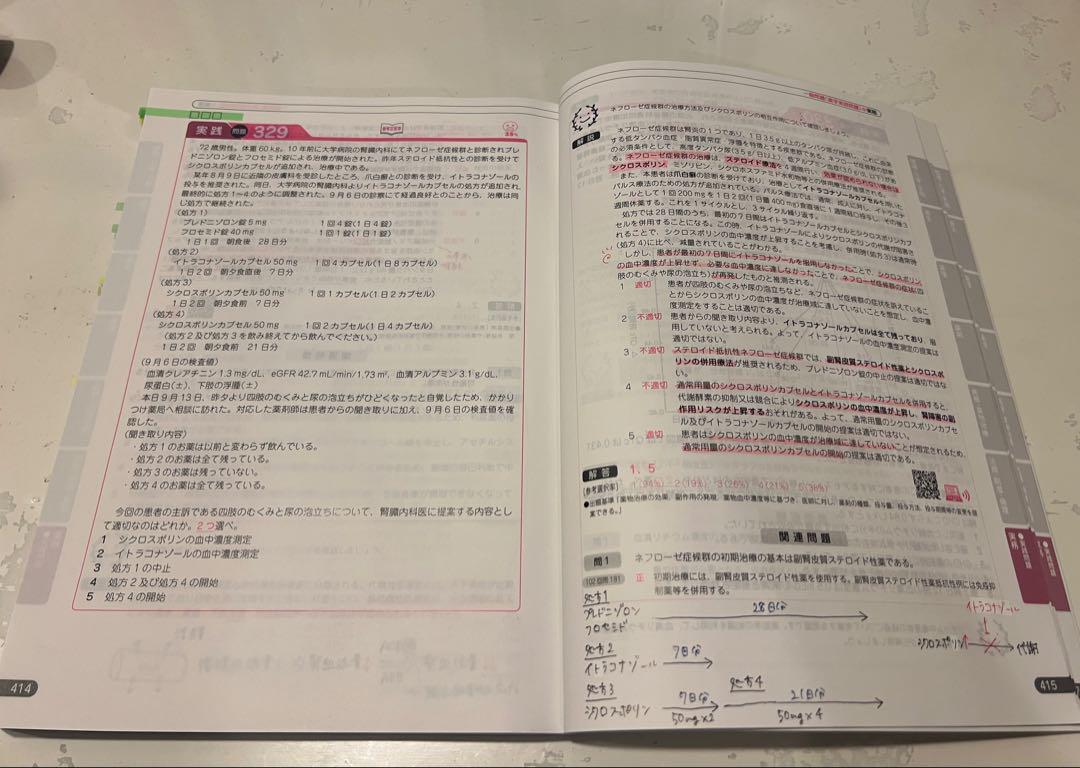 実践 問題 329
72歳男性。体重60kg。10年前に大学病院の腎臓内科にてネフローゼ症候群と診断されプレ
ドニゾロン錠とフロセミド錠による治療が開始された。昨年ステロイド抵抗性との診断を受けて
シクロスポリンカプセルが追加され、治療中である。
某年8月9日に近隣の皮膚科を受診したところ、爪白癬との診断を受け、イトラコナゾールの
投与を推奨された。同日、大学病院の腎臓内科よりイトラコナゾールカプセルの処方が追加され、
最終的に処方1~4のように調整された。9月6日の診察にて経過良好とのことから、治療は同
じ処方で継続された。
(処方1)
プレドニゾロン錠5mg 1回4錠(1日4錠)
フロセミド錠40mg 1回1錠(1日1錠)
1日1回 朝食後 28日分
(処方2)
イトラコナゾールカプセル50mg 1回4カプセル(1日8カプセル)
1日2回 朝夕食直後 7日分
(処方3)
シクロスポリンカプセル50mg 1回1カプセル(1日2カプセル)
1日2回 朝夕食前 7日分
(処方4)
シクロスポリンカプセル50mg 1回2カプセル(1日4カプセル)
(処方2及び処方3を飲み終えてから飲んでください。)
1日2回 朝夕食前 21日分
(9月6日の検査値)
血清クレアチニン1.3mg/dL、eGFR 42.7mL/min/1.73m²、血清アルブミン3.1g/dL、
尿蛋白(±)、下肢の浮腫(±)
本日9月13日、昨夕より四肢のむくみと尿の泡立ちがひどくなったと自覚したため、かかり
つけ薬局へ相談に訪れた。対応した薬剤師は患者からの聞き取りに加え、9月6日の検査値を確
認した。
(聞き取り内容)
・処方1のお薬は以前と変わらず飲んでいる。
・処方2のお薬は全て残っている。
・処方3のお薬は残っていない。
・処方4のお薬は全て残っている。
今回の患者の主訴である四肢のむくみと尿の泡立ちについて、腎臓内科医に提案する内容とし
て適切なのはどれか。2つ選べ。
1 シクロスポリンの血中濃度測定
2 イトラコナゾールの血中濃度測定
3 処方1の中止
4 処方2及び処方4の開始
5 処方4の開始
414
ネフローゼ症候群の治療方法及びシクロスポリンの相互作用について確認しましょう。
解説
ネフローゼ症候群は腎炎の1つであり、1日3.5g以上のタンパク尿が持続し、これに由来
する低タンパク血症、脂質異常症、浮腫を特徴とする疾患群である。ネフローゼ症候群の診断
の必須条件として、高度タンパク尿(3.5g/日以上)、低アルブミン血症(3.0g/dL以下)がある。
ネフローゼ症候群の治療は、ステロイド療法を4週続行い、効果が認められない場合は
シクロスポリン、ミゾリビン、シクロホスファミド水和物等との併用療法が推奨される。
また、本患者は爪白癬の診断を受けており、治療としてイトラコナゾールカプセルを用いた
パルス療法のための処方が追加されている。パルス療法では、通常、成人に対し、イトラコナ
ゾールとして1回200mgを1日2回(1日量400mg)食直後に1週間経口投与し、その後3
週間休薬する。これを1サイクルとし、3サイクル繰り返す。
処方では28日間のうち、最初の7日間はイトラコナゾールカプセルとシクロスポリンカプ
セルを併用することになる。この時、イトラコナゾールによりシクロスポリンの代謝が阻害さ
れることで、シクロスポリンの血中濃度が上昇することを考慮し、併用時(処方3)は通常時
(処方4)に比べ、減量されていることがわかる。
しかし、患者が最初の7日間にイトラコナゾールを服用しなかったことで、シクロスポリン
の血中濃度が上昇せず、必要な血中濃度に達しなかったことで、ネフローゼ症候群の症状(四
肢のむくみや尿の泡立ち)が再発したものと推測される。
1 適切 患者が四肢のむくみや尿の泡立ちなど、ネフローゼ症候群の症状を訴えているこ
とからシクロスポリンの血中濃度が治療域に達していないことを想定し、血中濃
度測定をすることは適切である。
2 不適切 患者からの聞き取り内容より、イトラコナゾールカプセルは全て残っており、服
用していないと考えられる。よって、イトラコナゾールの血中濃度測定の提案は
不適切である。
3 不適切 ステロイド抵抗性ネフローゼ症候群では、副腎皮質ステロイド性薬とシクロスポ
リンの併用療法が推奨されるため、プレドニゾロン錠の中止の提案は適切ではな
い。
4 不適切 通常用量のシクロスポリンカプセルとイトラコナゾールカプセルを併用すると、
代謝酵素の抑制又は競合によりシクロスポリンの血中濃度が上昇し、腎障害の副
作用リスクが上昇するおそれがある。よって、通常用量のシクロスポリンカプセ
ル及びイトラコナゾールカプセルの開始の提案は適切ではない。
5 適切 患者はシクロスポリンの血中濃度が治療域に達していないことが想定されるため、
通常用量のシクロスポリンカプセルの開始の提案は適切である。
解答 1、5
【参考選択率】 1(94%) 2(19%) 3(26%) 4(21%) 5(38%)
関連問題
問1 ネフローゼ症候群の初期治療の基本は副腎皮質ステロイド性薬である。
102回問181 正 初期治療には、副腎皮質ステロイド性薬を使用する。副腎皮質ステロイド性薬抵抗性例には免疫抑
制薬等を併用する。
処方1
プレドニゾロン 28日分
フロセミド
処方2
イトラコナゾール 7日分
処方3 処方4
シクロスポリン 7日分 21日分
50mg×2 50mg×4
イトラコナゾール
シクロスポリン↑ 代謝
実務
●実践問題
415